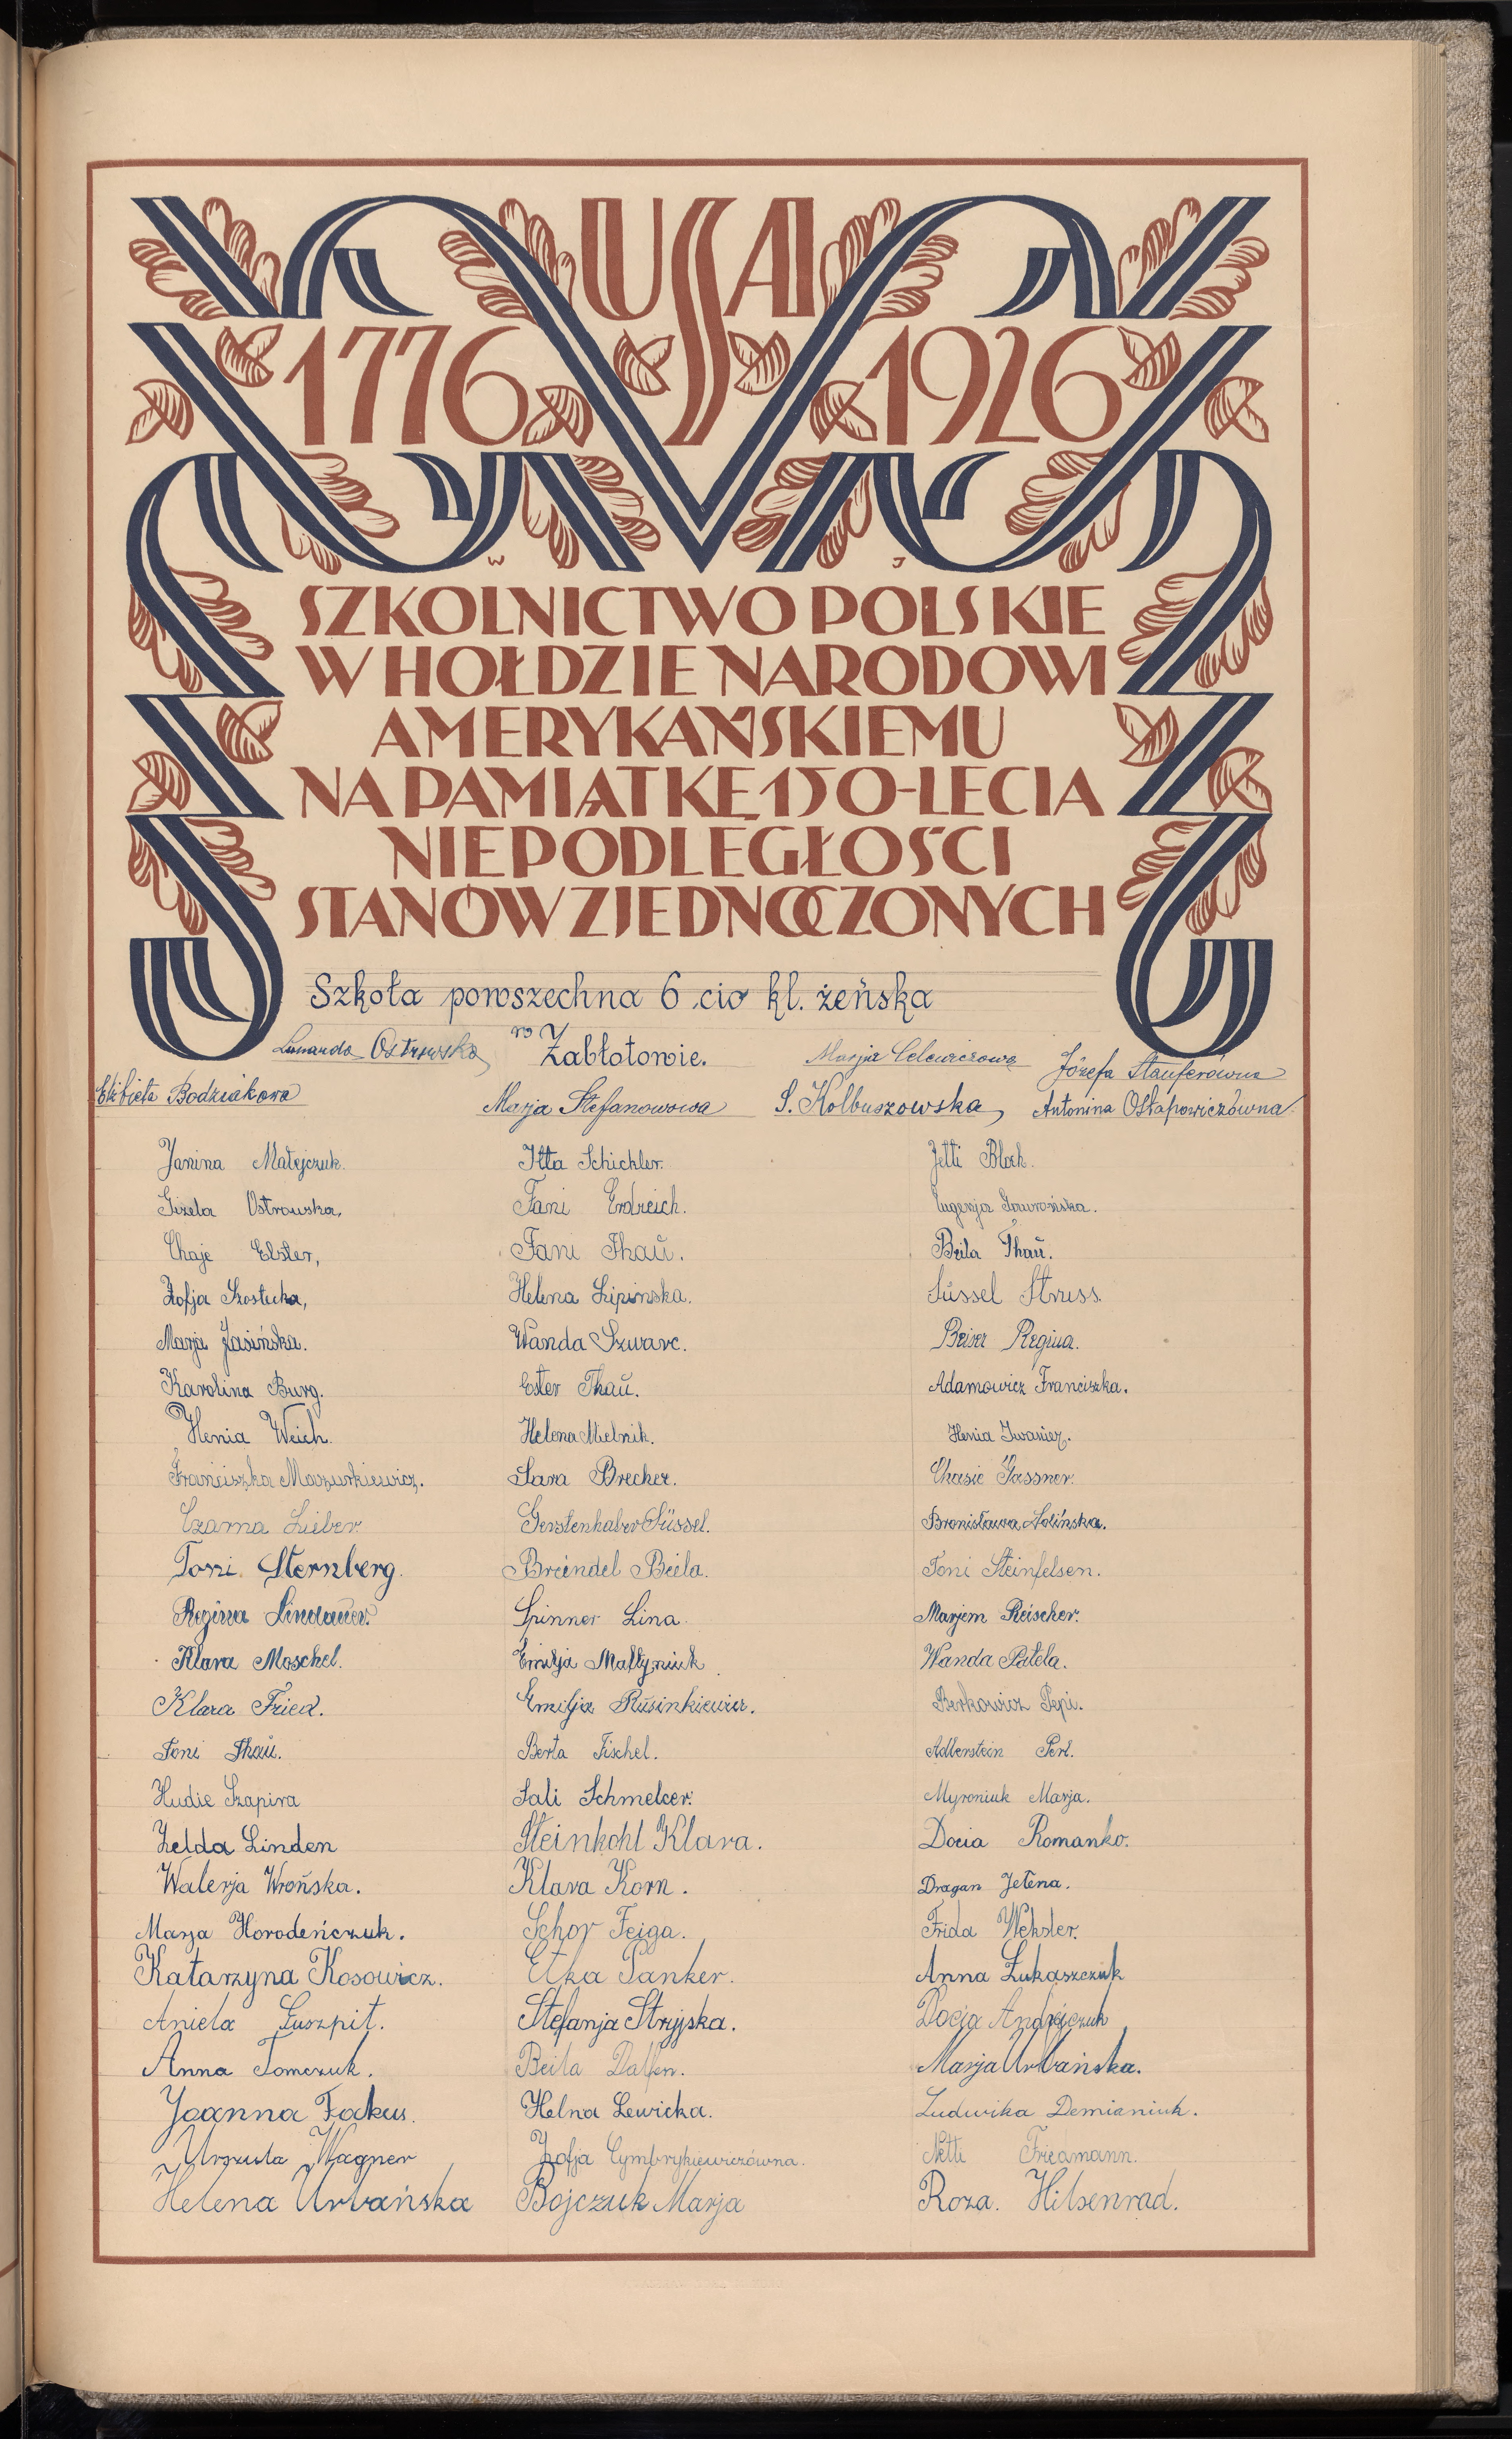 USA
1776 1926
W J
SZKOLNICTWO POLSKIE
W HOŁDZIE NARODOWI
AMERYKAŃSKIEMU
NA PAMIĄTKĘ 150-LECIA
NIEPODLEGŁOŚCI
STANÓW ZJEDNOCZONYCH
Szkoła powszechna 6 cio kl. żeńska
w Zabłotowie.
Ostrowska Marja Celewiczowa Józefa Stauferówna
Elżbieta Bodziakowa Marja Stefanowowa S. Kolbuszowska, Antonina Ostapowiczówna
Janina Matejczuk. Itta Schichler. Jetti Bloch.
Gizela Ostrowska, Fani Erdreich. Eugenja Jaworońska.
Chaje Elster, Fani Thaŭ. Beila Thaŭ.
Zofja Szostecka, Helena Lipinska. Süssel Struss.
Marja Jasińska. Wanda Szwarc. Beiser Regina.
Karolina Burg. Ester Thaŭ. Adamowicz Franciszka.
Henia Weich. Helena Mielnik. Henia Iwaniez.
Franciszka Mazurkiewicz. Sara Brecher. Chasie Gassner.
Czarna Lieber. Gerstenhaber Süssel. Bronisława Solińska.
Toni Sternberg. Breindel Beila. Toni Steinfelsen.
Regina Lindaŭer. Spinner Lina. Marjem Reischer.
Klara Moschel. Emilja Maltyniuk. Wanda Patela.
Klara Fried. Emilja Rusinkiewicz. Berkowicz Pepi.
Toni Thaŭ. Berta Fischel. Adlerstein Perl.
Hudie Szapira Sali Schmelcer. Myroniuk Marja.
Zelda Linden Steinkohl Klara. Docia Romanko.
Walerja Wrońska. Klara Korn. Dragan Jełena.
Marja Horodeńczuk. Schor Feiga. Frida Weksler.
Katarzyna Kosowicz. Etka Tanker. Anna Łukaszczuk
Aniela Guszpit. Stefanja Stryjska. Docja Andrejczuk
Anna Tomczuk. Beila Dalfen. Marja Urbańska.
Joanna Fokus. Helna Lewicka. Ludwika Demianiuk.
Urszula Wagner Zofja Cymbrykiewiczówna. Netti Friedmann.
Helena Urbańska Bojczuk Marja Roza. Hilsenrad.